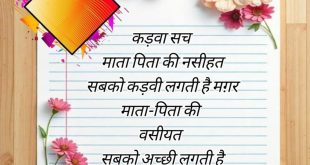 कड़वा सच
माता पिता की नसीहत
सबको कड़वी लगती है मग़र
माता-पिता की
वसीयत
सबको अच्छी लगती है